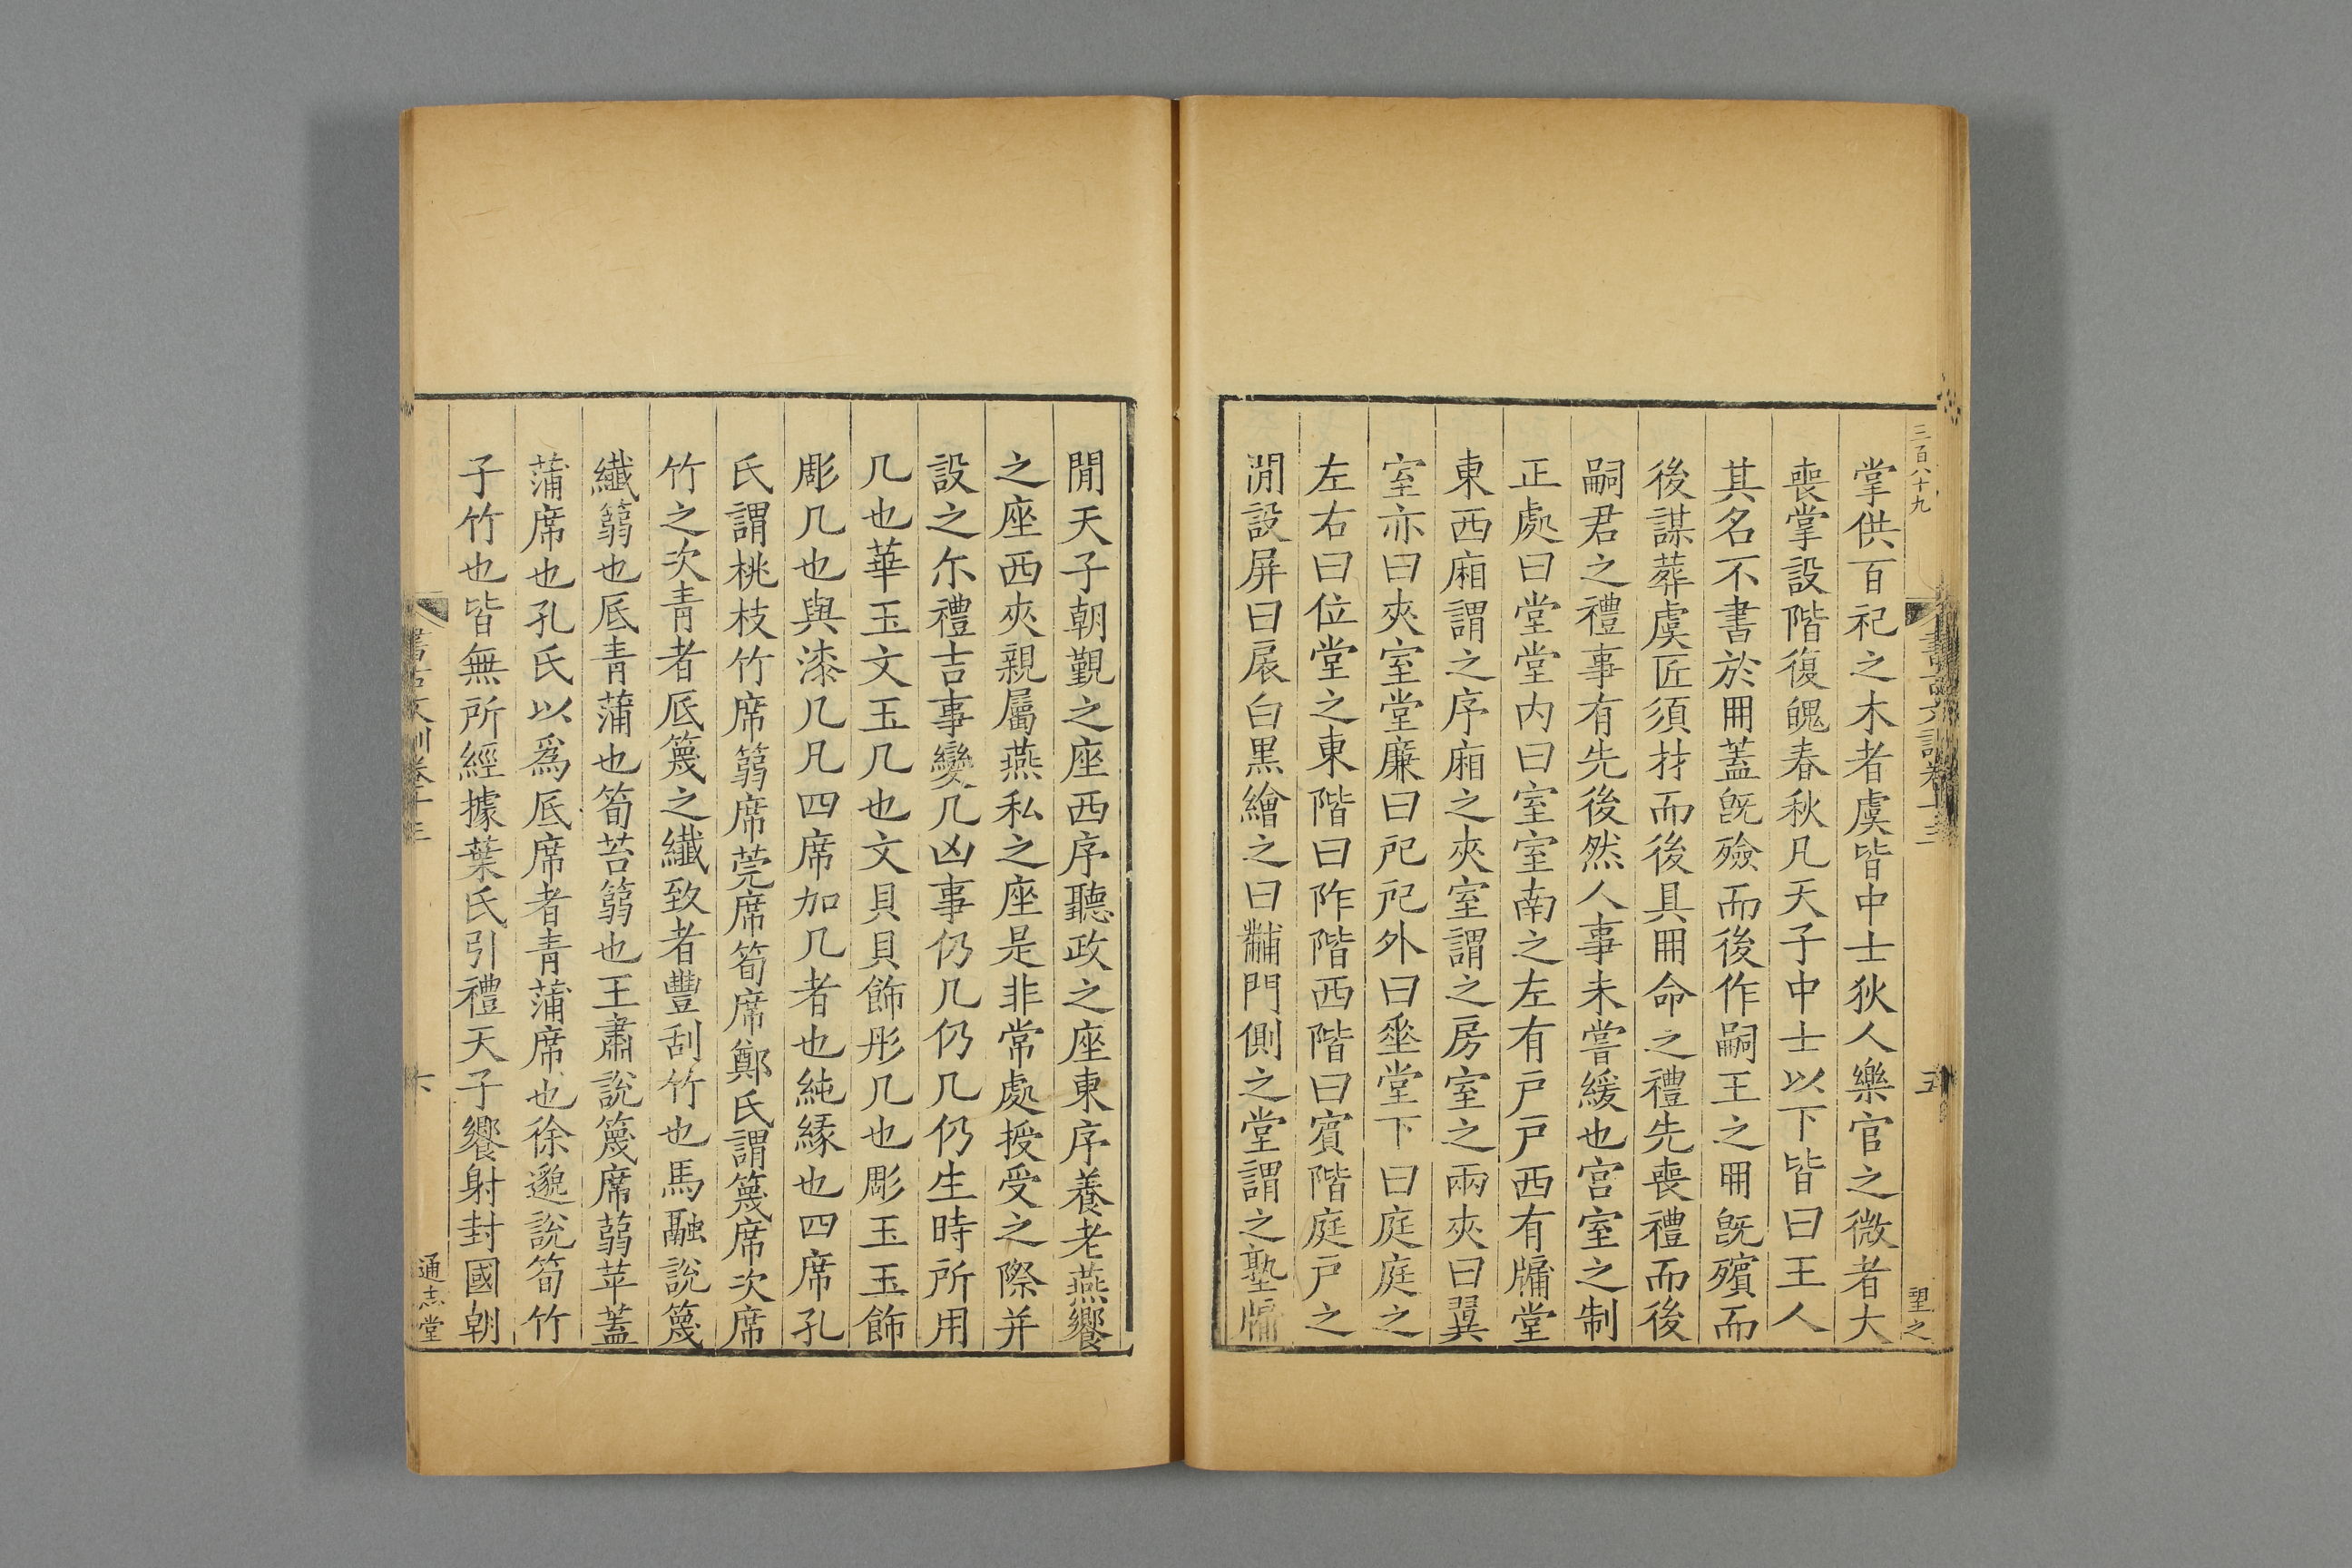 三百八十九
掌供百祀之木者虞皆中士狄人樂官之微者大
喪掌設階復魄春秋凡天子中士以下皆曰王人
其名不書於冊蓋旣殮而後作嗣王之冊旣殯而
後謀葬虞匠須材而後具冊命之禮先喪禮而後
嗣君之禮事有先後然人事未嘗緩也宮室之制
正處曰堂堂内曰室室南之左有戶戶西有牖堂
東西廂謂之序廂之夾室謂之房室之兩夾曰翼
室亦曰夾室堂廉曰戺戺外曰垂堂下曰庭庭之
左右曰位堂之東階曰阼階西階曰賓階庭戶之
閒設屏曰扆白黑繪之曰黼門側之堂謂之塾牖
書古文訓卷十三
五
望之
閒天子朝覲之座西序聽政之座東序養老燕饗
之座西夾親屬燕私之座是非常處授受之際并
設之尒禮吉事變几凶事仍几仍几仍生時所用
几也華玉文玉几也文貝貝飾彤几也彫玉玉飾
彫几也與漆几凡四席加几者也純緣也四席孔
氏謂桃枝竹席篛席莞席筍席鄭氏謂篾席次席
竹之次青者厎篾之纖致者豐刮竹也馬融說篾
纖篛也厎青蒲也筍苔篛也王肅說篾席蒻苹蓋
蒲席也孔氏以爲厎席者青蒲席也徐邈說筍竹
子竹也皆無所經據葉氏引禮天子饗射封國朝
書古文訓卷十三
六
通志堂